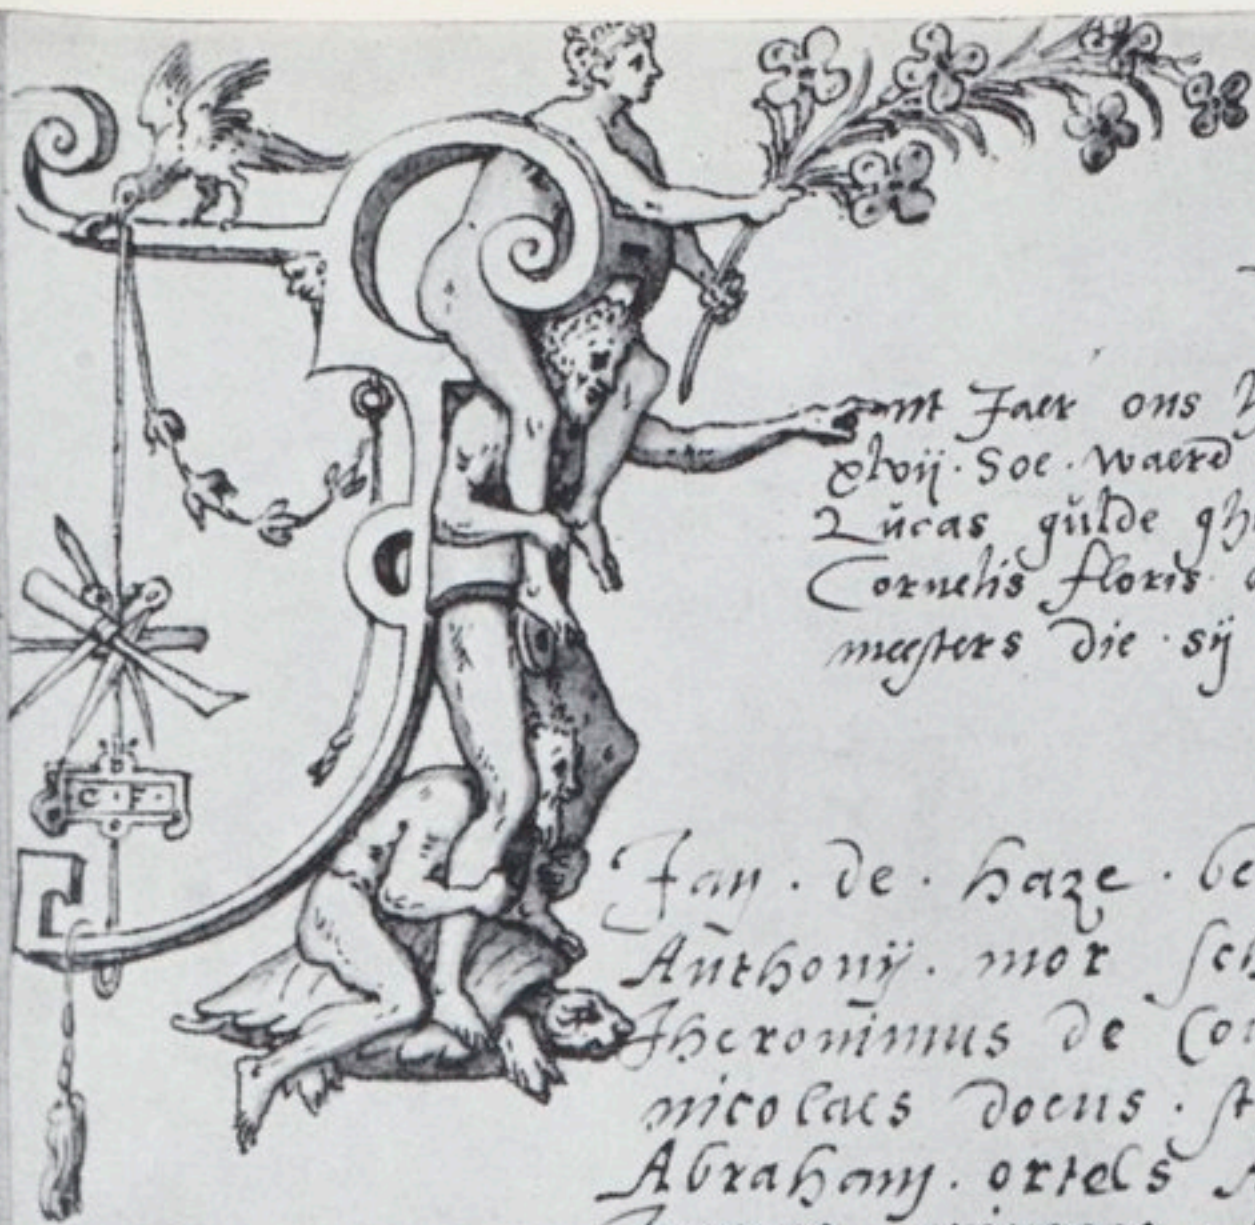 C · F ·
int Jaer ons
xlvij · Soe · waerd
Lucas gulde gh
Cornelis floris
meesters die · sij
Jan · de · haze · be
Anthonij · mor sch
Jheronimus de Co
nicolaes docus · st
Abraham · ortels